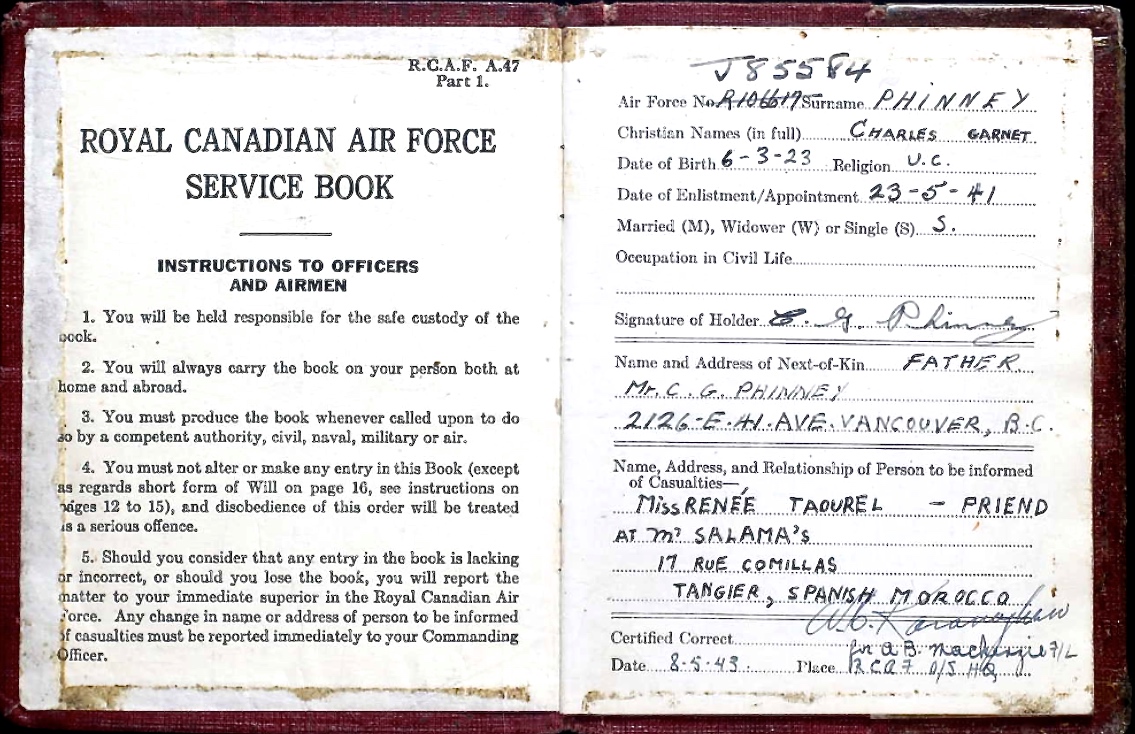 R.C.A.F. A.47
Part 1.
ROYAL CANADIAN AIR FORCE
SERVICE BOOK
INSTRUCTIONS TO OFFICERS
AND AIRMEN
1. You will be held responsible for the safe custody of the
book.
2. You will always carry the book on your person both at
home and abroad.
3. You must produce the book whenever called upon to do
so by a competent authority, civil, naval, military or air.
4. You must not alter or make any entry in this Book (except
as regards short form of Will on page 16, see instructions on
pages 12 to 15), and disobedience of this order will be treated
as a serious offence.
5. Should you consider that any entry in the book is lacking
or incorrect, or should you lose the book, you will report the
matter to your immediate superior in the Royal Canadian Air
Force. Any change in name or address of person to be informed
of casualties must be reported immediately to your Commanding
Officer.
J85584
Air Force No. Surname PHINNEY
Christian Names (in full) CHARLES GARNET
Date of Birth 6-3-23 Religion U.C.
Date of Enlistment/Appointment 23-5-41
Married (M), Widower (W) or Single (S) S.
Occupation in Civil Life
Signature of Holder C. G. Phinney
Name and Address of Next-of-Kin FATHER
Mr. C. G. PHINNEY
2126-E.41.AVE.VANCOUVER, B.C.
Name, Address, and Relationship of Person to be informed
of Casualties—
Miss RENÉE TAOUREL - FRIEND
AT Mr SALAMA'S
17 RUE COMILLAS
TANGIER, SPANISH MOROCCO
Certified Correct
for A.B. Mackenzie F/L
Date 8-5-43 Place RCAF O/S HQ